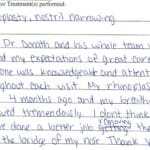 or Treatment(s) performed:
plasty, nostril narrowing
Dr Donath and his whole team
ed my expectations of great care
one was knowledgeable and attent
ghout each visit. My rhinoplas
4 months ago and my breathi
ved tremendously. I dont think
ve done a better job removing the
the bridge of my nose. Thank y